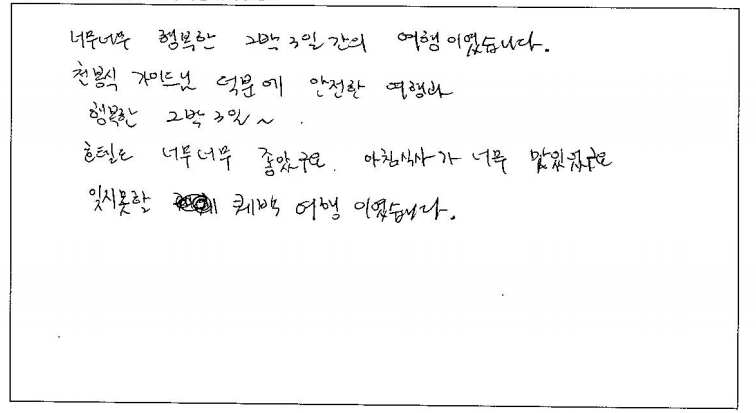 너무너무 행복한 2박 3일간의 여행이였습니다.
천봉식 가이드님 덕분에 안전한 여행과
행복한 2박 3일~.
호텔도 너무너무 좋았구요. 아침식사가 너무 맛있었구요
잊지못할 퀘백 여행이였습니다.